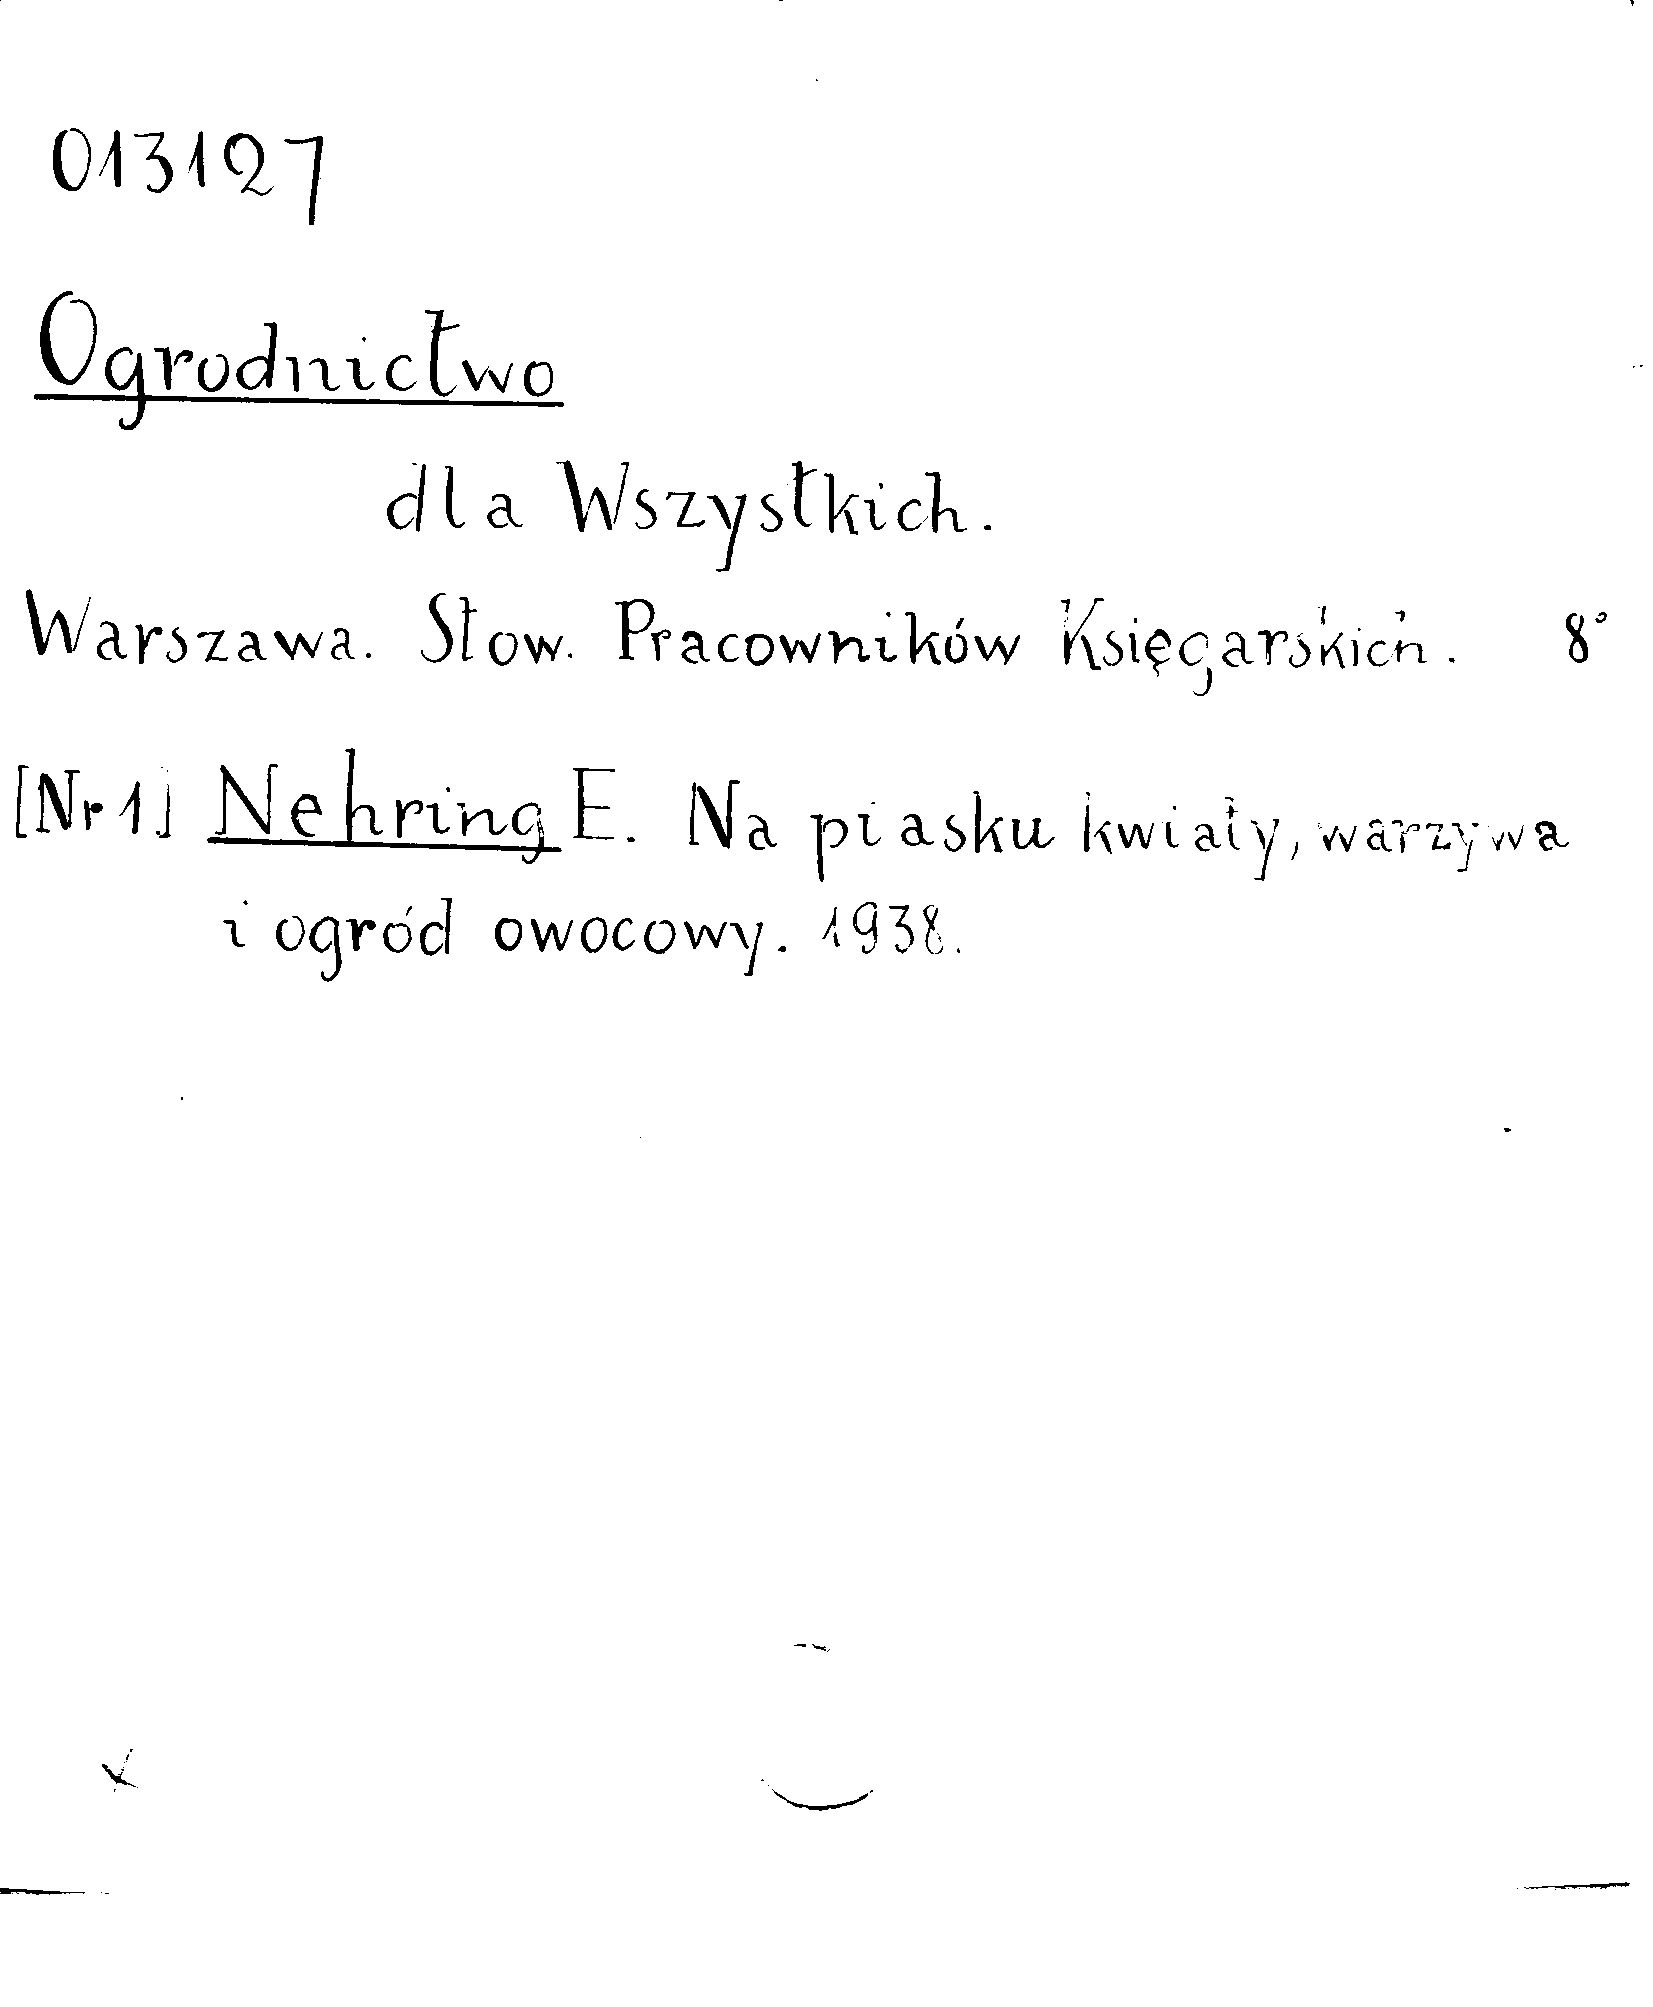 013127
Ogrodnictwo
dla Wszystkich.
Warszawa. Stow. Pracowników Księgarskich. 8°
[Nr 1] Nehring E. Na piasku kwiaty, warzywa
i ogród owocowy. 1938.